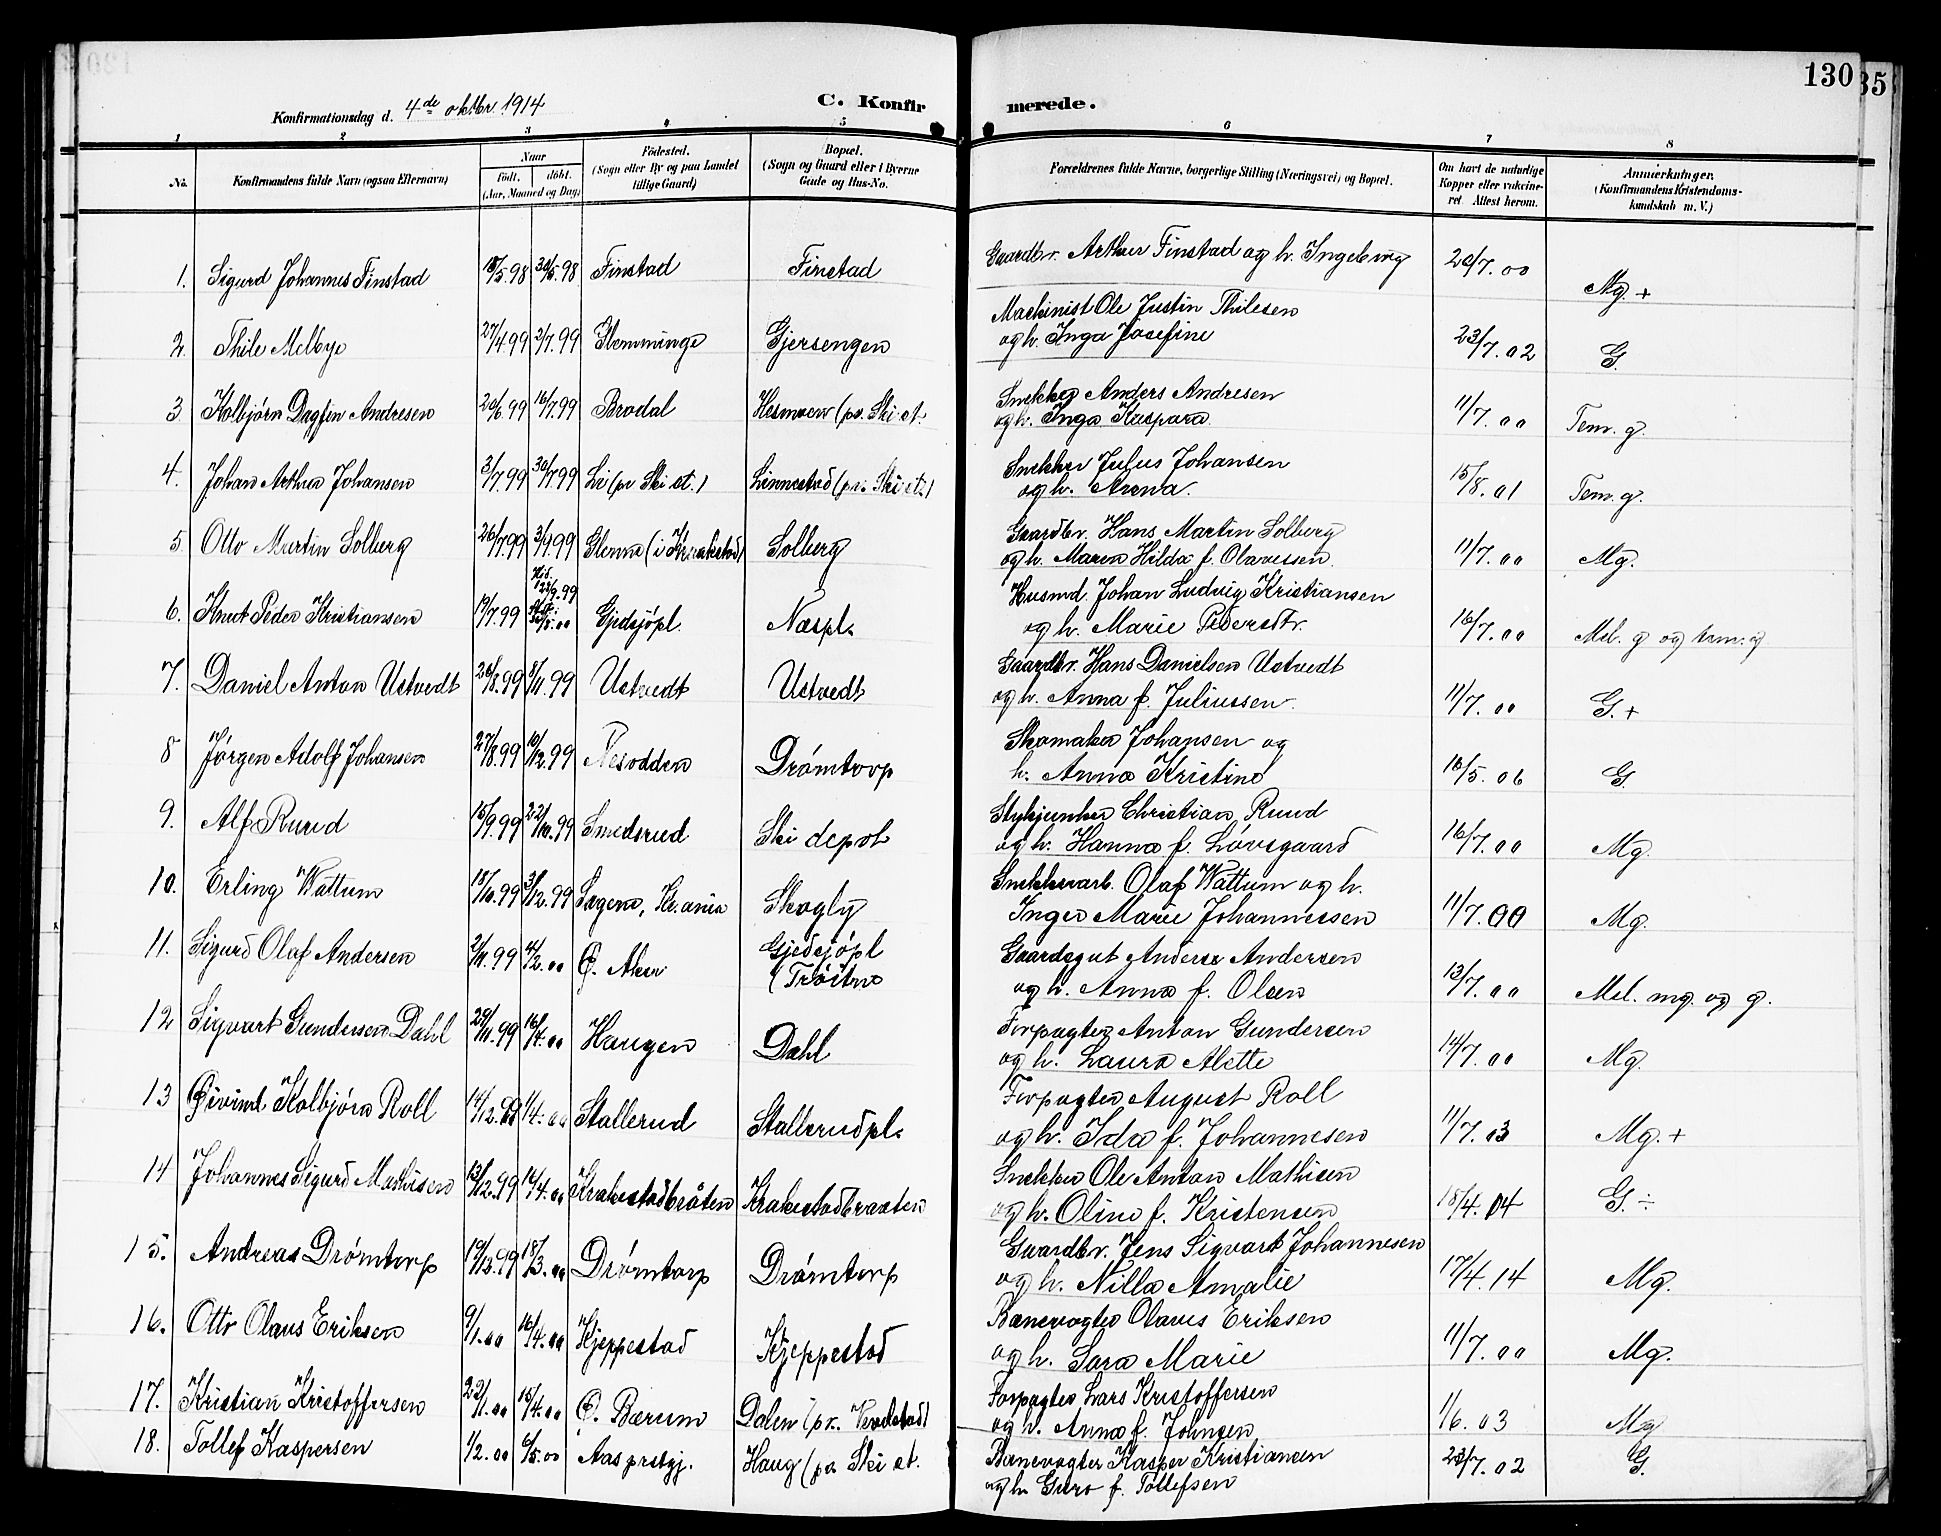 130
35
Konfirmationsdag d. 4de oktbr. 1914
C. Konfirmerede.
1 2 3 4 5 6 7 8
No.
Konfirmandens fulde Navn (ogsaa Efternavn)
Naar
födt. döbt.
(Aar, Maaned og Dag)
Födested.
(Sogn eller By og paa Landet
tillige Gaard)
Bopæl.
(Sogn og Gaard eller i Byerne
Gade og Hus-No.
Forældrenes fulde Navne, borgerlige Stilling (Næringsvei) og Bopæl.
Om havt de naturlige
Kopper eller vakcine-
ret. Attest herom.
Anmærkninger.
(Konfirmandens Kristendoms-
kundskab m. V.)
1. Sigurd Johannes Finstad 18/5.98 30/5.98 Finstad Finstad Gaardbr. Arthur Finstad og h. Ingeborg 20/7.00 Mg. +
2. Thile Melbye 27/4.99 2/7.99 Glemminge Gjersengen Maskinist Ole Justin Thilesen
og h. Inga Josefine 23/7.02 G.
3 Kolbjörn Dagfin Andresen 20/6 99 16/7.99 Brodal Hesmoen (pr. Ski st. Snekker Anders Andresen
og h. Inga Kaspara 11/7.00 Tem. g.
4. Johan Arthur Johansen 3/7.99 30/7.99 Li (pr Ski st.) Linnestad (pr. Ski st.) Snekker Julius Johansen
og h. Anna. 15/8.01 Tem. g.
5. Otto Martin Solberg 26/7.99 3/9.99 Glenne (i Kraakstad) Solberg Gaardbr. Hans Martin Solberg
og h. Maren Hilda f. Olavessen. 11/7.00 Mg.
6. Knut Peder Kristiansen 19/7.99 Gjedsjöpl. Næspl. Husmd. Johan Ludvig Kristiansen
og h. Marie Pedersdtr. 16/7.00 Mel. g og tem. g
7. Daniel Anton Ustvedt 26/8.99 8/11.99 Ustvedt Ustvedt Gaardbr. Hans Danielsen Ustvedt
og h. Anna f. Juliussen. 11/7.00 G. +
8 Jörgen Adolf Johansen 27/8.99 10/12.99 Nesodden Drömtorp Skomaker Johansen og
h. Anna Kristine 16/5.06 G.
9. Alf Ruud 15/9.99 22/10.99 Smedsrud Ski depot Stykjunker Christian Ruud
og h. Hanna f. Lövsgaard 16/7.00 Mg.
10. Erling Wattum 18/10.99 31/12.99 Sagene, Kr.ania Skogly Snekkerarb. Olaf Wattum og h.
Inger Marie Johannessen 11/7.00 Mg.
11. Sigurd Olaf Andersen 2/11.99 4/2.00 Ö. Aker Gjedsjöpl
(Tröitne Gaardsgut Anders Andersen
og h. Anna f. Olsen 13/7.00 Mel. mg. og g.
12 Sigvart Gundersen Dahl 29/11.99 16/4.00 Haugen Dahl Forpagter Anton Gundersen
og h. Laura Alette 14/7.00 Mg.
13 Öivind Kolbjörn Roll 14/12.99 1/4.00 Stallerud Stallerudpl. Forpagter August Roll
og h. Ida f. Johannesen 11/7.03 Mg. +
14 Johannes Sigurd Mathisen 13/12.99 16/4.00 Krakestadbråten Krakestadbraaten Snekker Ole Anton Mathisen
og h. Oline f. Kristensen 18/4.04 G. ÷
15. Andreas Drömtorp 19/12.99 18/3.00 Drömtorp Drömtorp Gaardbr. Jens Sigvart Johannesen
og h. Nilla Amalie 17/4.14 Mg.
16. Otto Olaus Eriksen 9/1.00 16/4.00 Kjeppestad Kjeppestad Banevogter Olaus Eriksen
og h. Sara Marie 11/7.00 Mg.
17. Kristian Kristoffersen 22/1.00 15/4.00 Ö. Bærum Dalen (pr. Vevelstad) Forpagter Lars Kristoffersen
og h. Anna f. Johnsen 1/6.03 Mg
18. Tollef Kaspersen 1/2.00 6/5.00 Aas prstgj. Haug (pr Ski st. Banevogter Kasper Kristiansen
og h Guro f. Tollefsen 23/7.02 G.